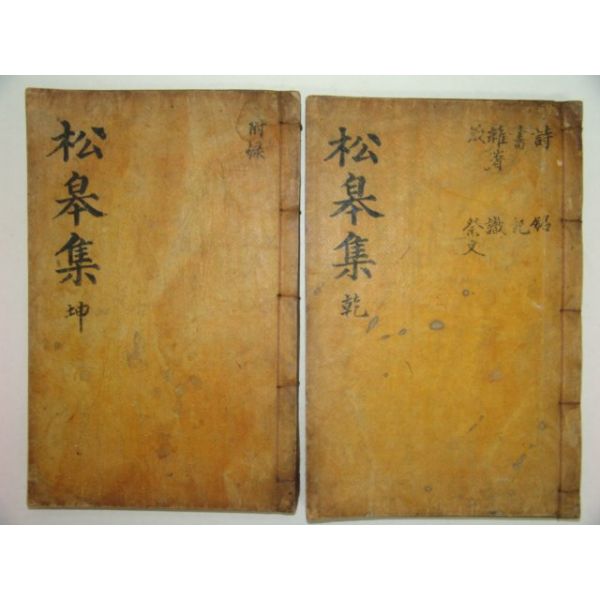 松皐集 乾
詩 銘
書 記
雜著 識
祭文
松皐集 坤
附錄